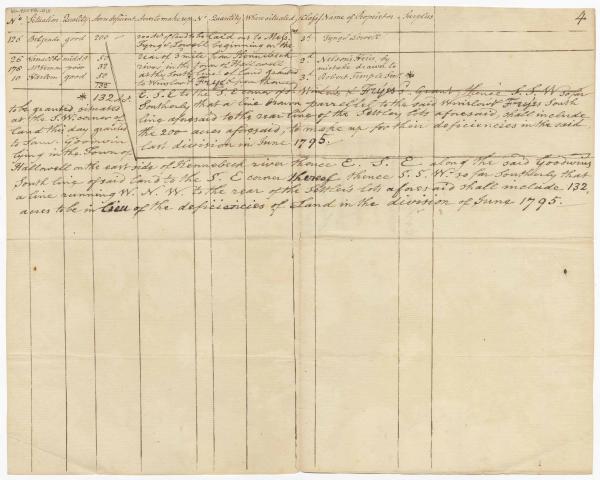 4
No Situation Quality Acres deficient Acres to make up No Quantity Where situated Class Name of Proprietor Surplus
126 Belgrade good 200 200 acres of land to be laid out to Mess. 3d Tyng & Lowell
Tyng & Lowell beginning in the
26 middg 50 rear of 3 mile from Kennebeck 2d Nelson's Heirs, by
178 poor 32 river, in the town of Hallowell mistake drawn to
10 Harlem good 50 at the South line of Land granted 3d Robert Temple
132 to Winslow & Fryes from thence
* 132 acres E. S. E to the S. E corner of Winslow & Fryes Grant, thence S. S. W so far
to be granted situated Southerly that a line drawn parrellel to the said Winslow & Fryes South
at the S. W. corner of line aforesaid to the rear line of the Settlers lots aforesaid, shall include
land this day granted the 200 acres aforesaid, to make up for their deficiencies in the said
to Saml. Goodwin last division in June 1795.
lying in the Town of
Hallowell on the east side of Kennebeck river thence E. S. E along the said Goodwins
South line of said land to the S. E corner thereof thence S. S. W. so far Southerly that
a line running W. N. W. to the rear of the Settlers lots aforesaid shall include 132
acres to be in lieu of the deficiencies of Land in the division of June 1795.